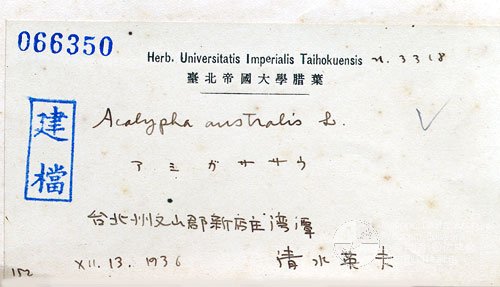 066350
Herb. Universitatis Imperialis Taihokuensis n. 3318
臺北帝國大學腊葉
建檔
Acalypha australis L.
アミガササウ
台北州文山郡新店庄湾潭
XII. 13. 1936 清水英夫
152